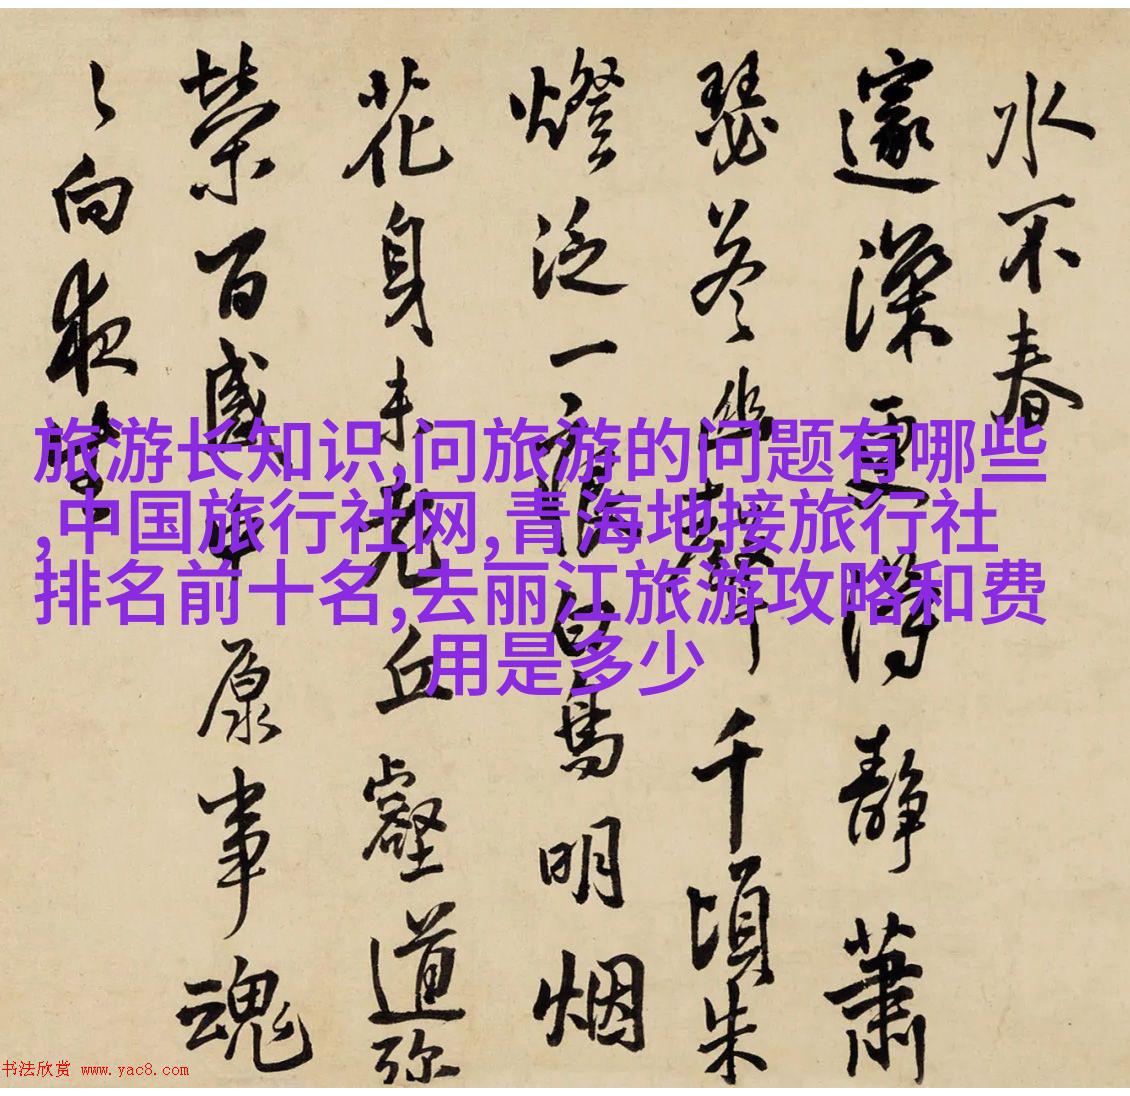 旅游长知识,问旅游的问题有哪些
,中国旅行社网,青海地接旅行社
排名前十名,去丽江旅游攻略和费
用是多少
水不春
邃深更得静萧
瑟琴幽声千顷朱
灯泛一白鸟明烟
花身未老丘壑道弥
荣百感中原事魂
向夜
书法欣赏 www.yac8.com